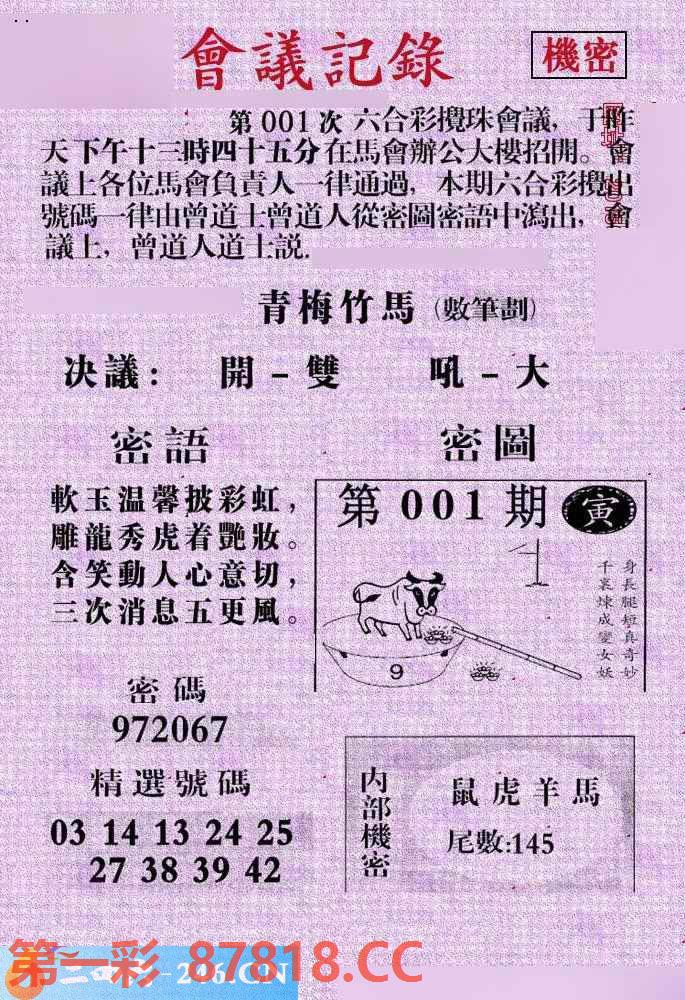 會議記錄
機密
第001次 六合彩攪珠會議，于昨
天下午十三時四十五分在馬會辦公大樓招開。會
議上各位馬會負責人一律通過，本期六合彩攪出
號碼一律由曾道士曾道人從密圖密語中瀉出，會
議上，曾道人道士説.
青梅竹馬（數筆劃）
决議： 開－雙 吼－大
密語
軟玉温馨披彩虹，
雕龍秀虎着艷妝。
含笑動人心意切，
三次消息五更風。
密圖
第001期 寅
身長腿短真奇妙
千裏煉成變女妖
9
密碼
972067
精選號碼
03 14 13 24 25
27 38 39 42
内部機密
鼠虎羊馬
尾數:145
第一彩 87818.CC
246.CN